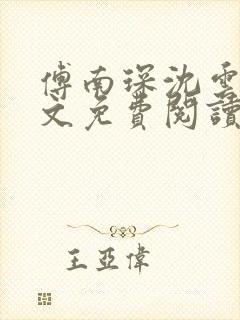 傅南琛沈雲
文免費閱讀
王亞偉